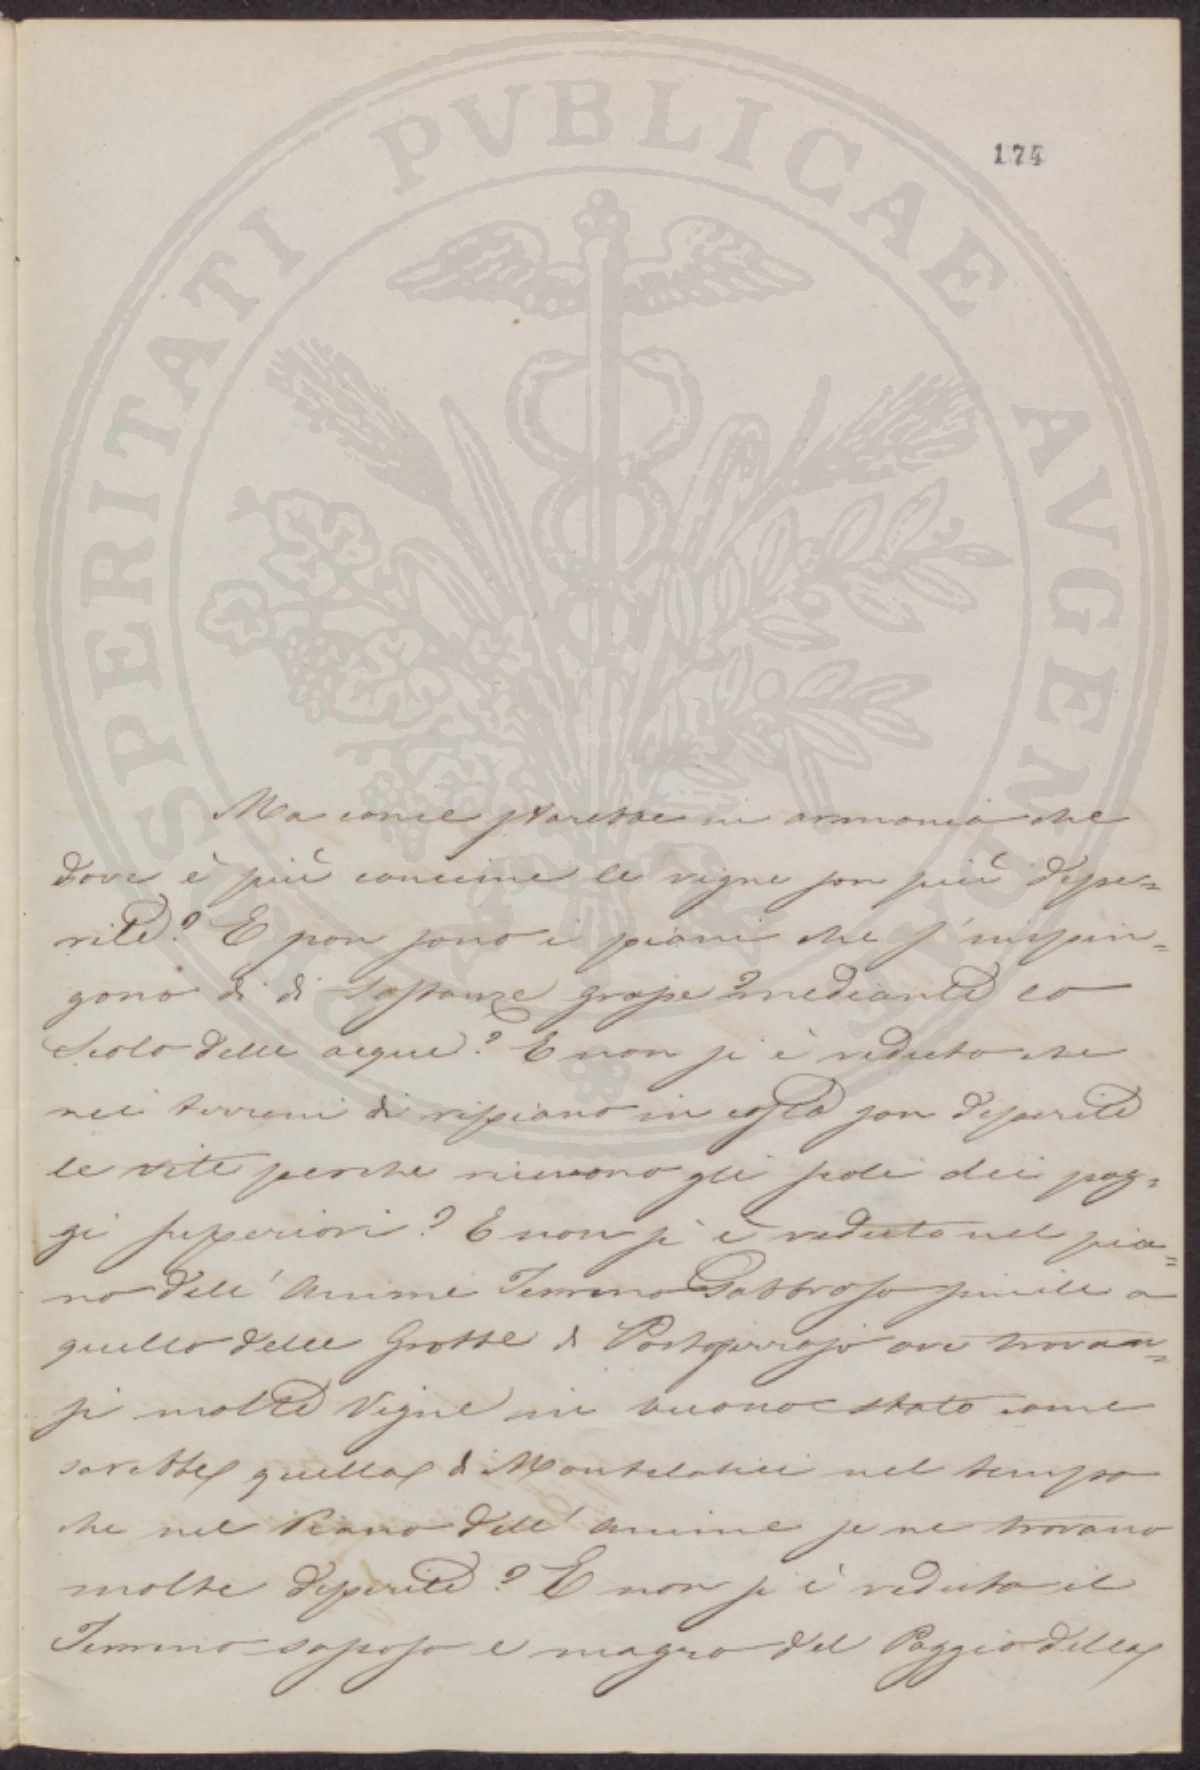 PROSPERITATI PVBLICAE AVGENDAE
174
Ma come starebbe in armonia che
dove è più concime le vigne son più depe=
rite? E pon sono i piani che s'impin=
gono di di Sostanze grasse mediante lo
Scolo delle acque? E non si è veduto che
nei terreni di ripiano in costa son deperite
le viti perche ricevono gli scoli dei pog=
gi superiori? E non si è veduto nel pia=
no dell'Anime Terreno Gabbroso simile a
quello delle Grotte di Portoferrajo ove trovan=
si molte Vigne in buono stato come
sarebbe quella di Montelatici nel tempo
che nel Piano dell'Anime se ne trovano
molte deperite? E non si è veduto il
Terreno sassoso e magro del Poggio della